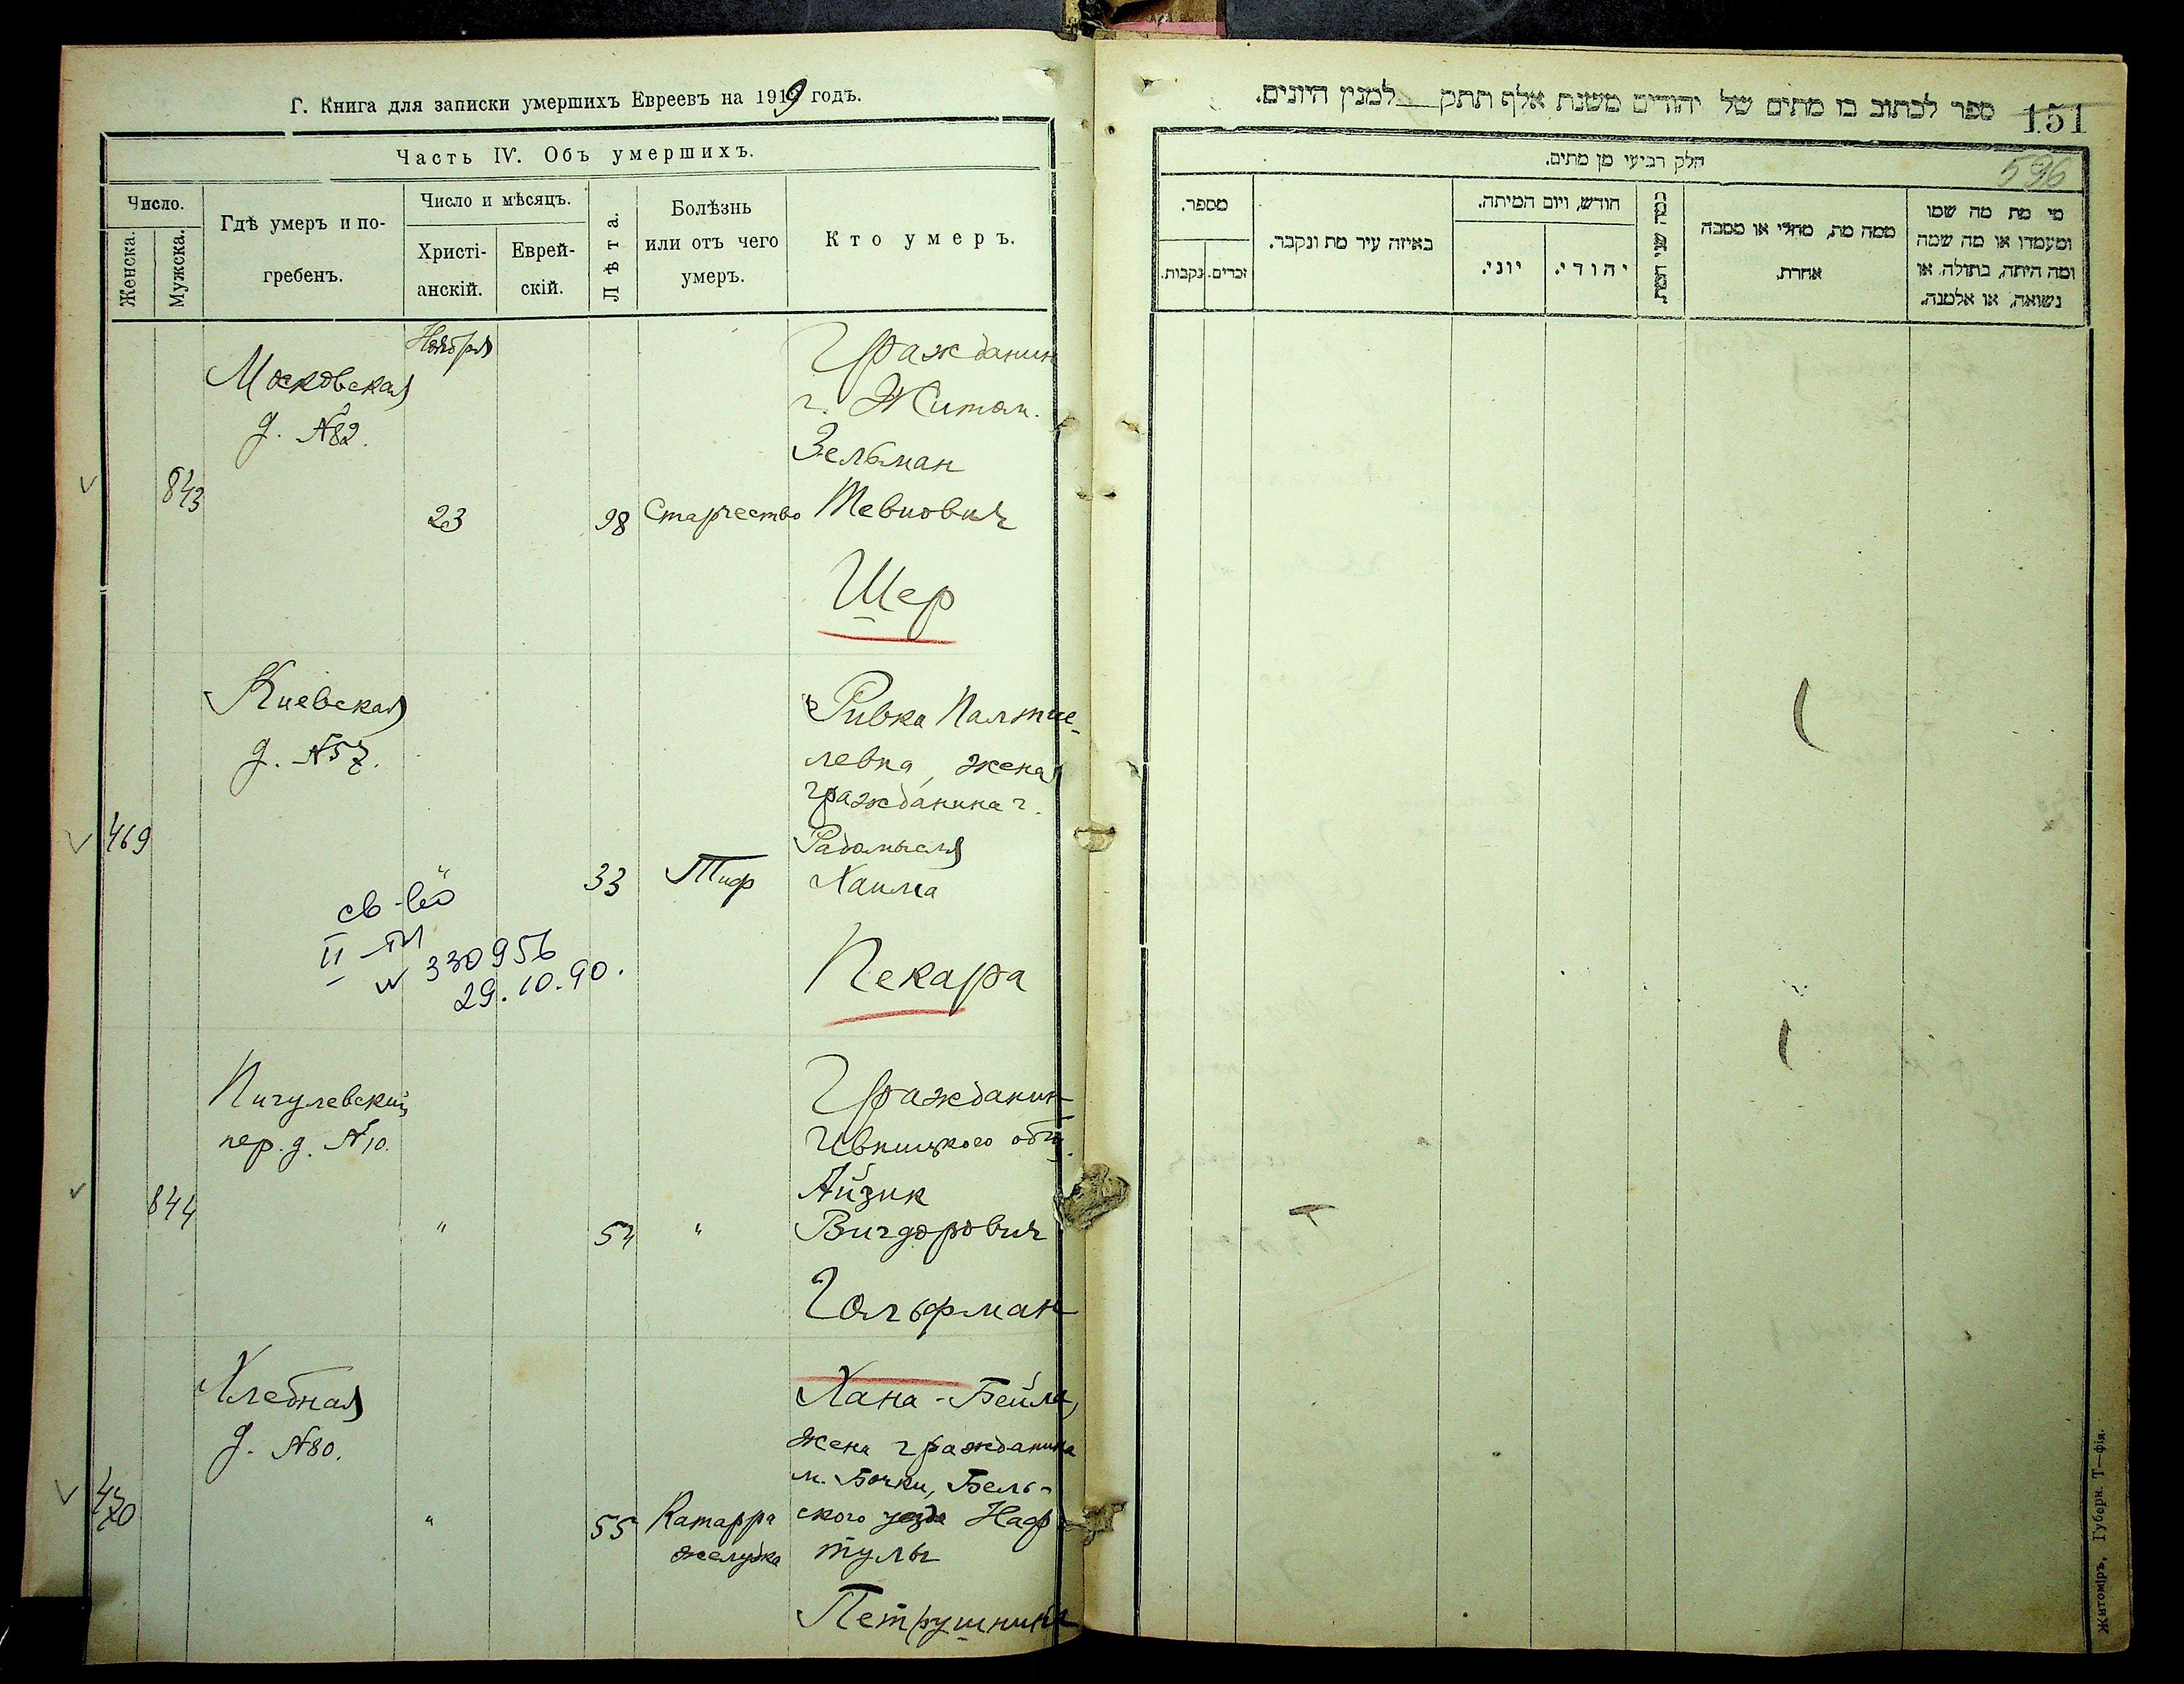 Г. Книга для записки умершихъ Евреевъ на 1919 годъ.
Часть IV. Объ умершихъ.
Число.
Женска.
Мужска.
Гдѣ умеръ и по-
гребенъ.
Число и мѣсяцъ.
Христі-
анскій.
Еврей-
скій.
Лѣта.
Болѣзнь
или отъ чего
умеръ.
Кто умеръ.
Ноября
Московская
д. №82.
843
23
98
Старчество
Гражданин
г. Житом.
Зельман
Тевиович
Шер
Киевская
д. №57.
469
"
33
Тиф
Ривка Палтие-
левна, жена
гражданина г.
Радомысля
Хаима
Пекара
св-во
II
№ 330956
29.10.90.
Пигулевский
пер. д. №10.
844
"
54
"
Гражданин
Ивницкого общ.
Айзик
Вигдорович
Гольфман
Хлебная
д. №80.
470
"
55
Катарра
желудка
Хана-Бейла,
жена гражданина
м. Бочки, Бель-
ского уезда Наф
тулы
ספר לכתוב בו מתים של יהודים משנת אלף תתק למנין היונים.
151
596
חלק רביעי מן מתים.
מספר.
זכרים.
נקבות.
באיזה עיר מת ונקבר.
חודש, ויום המיתה.
יהודי.
יוני.
כמה שני המת.
ממה מת, מחלי או מסבה
אחרת.
מי מת מה שמו
ומעמדו או מה שמה
ומה היתה, בתולה או
נשואה, או אלמנה.
Житоміръ, Губерн. Т—фія.